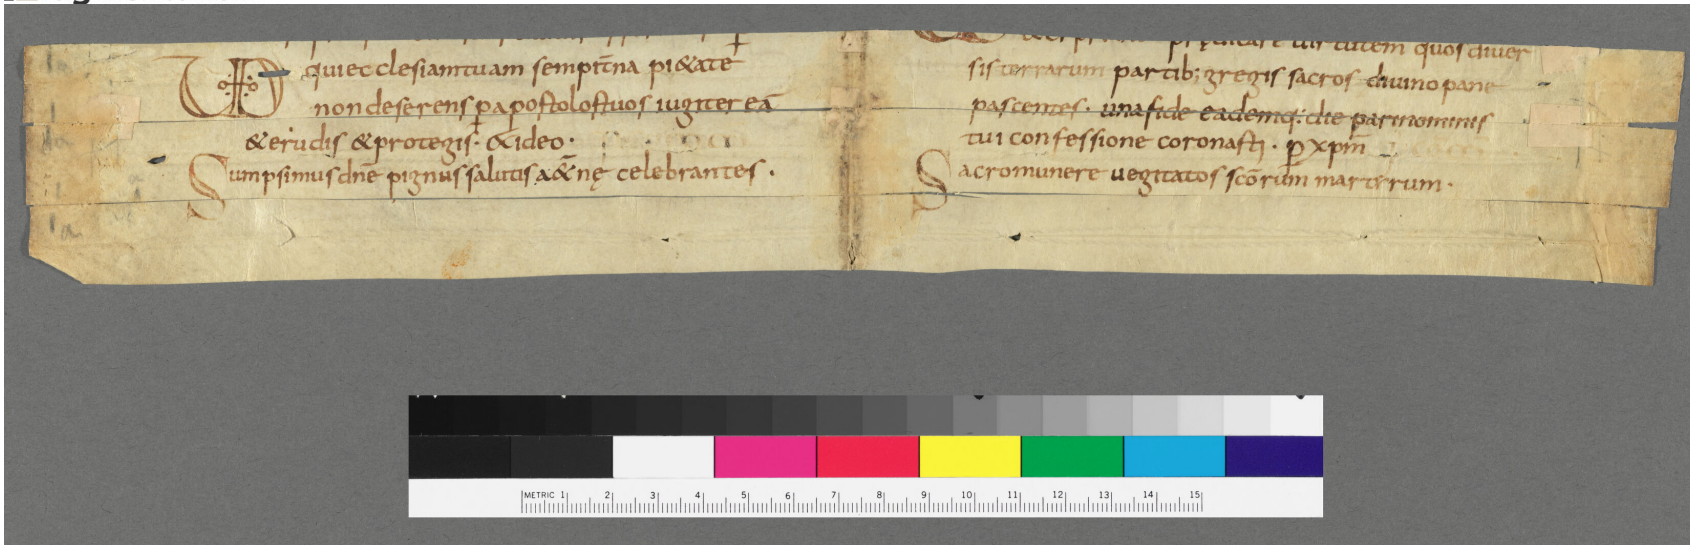 qui ecclesiam tuam sempit̄na pi&ate
non deserens p̲ apostolos tuos iugiter eā
& erudis & protegis · & ideo ·
Sumpsimus dn̄e pignus salutis a&n̄ę celebrantes ·
prędicare uirtutem quos diuer
sis terrarum partib; gregis sacros diuino pane
pascentes · una fide eademq: die pari nominis
tui confessione coronasti · ꝑ xp̄m
Sacro munere uegitatos scōrum martyrum ·
METRIC 1 2 3 4 5 6 7 8 9 10 11 12 13 14 15